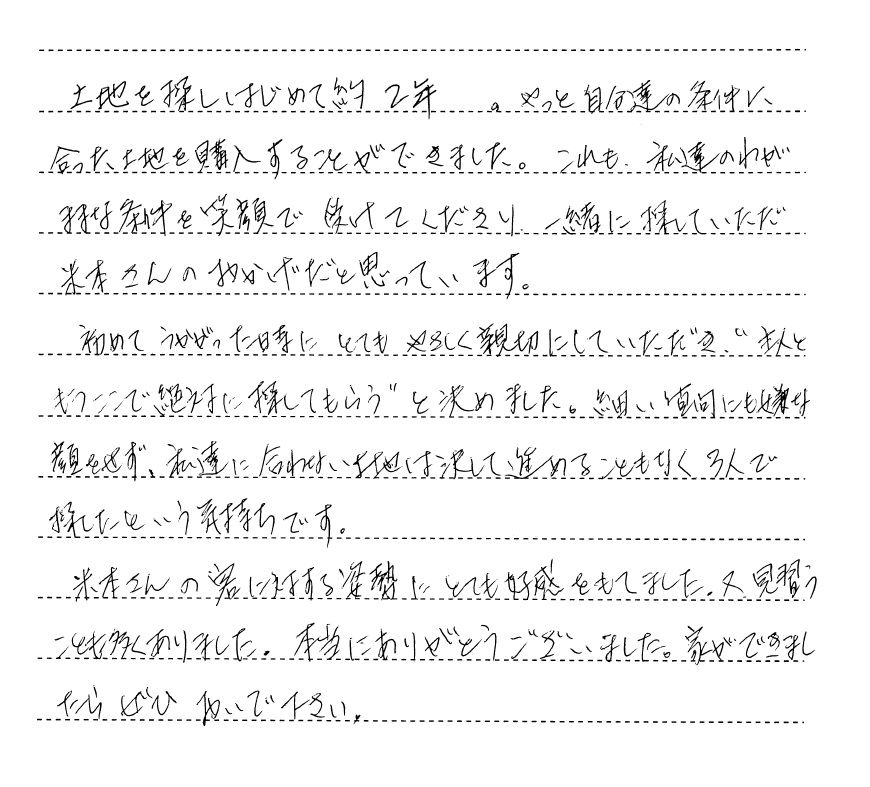 土地を探しはじめて約2年 。やっと自分達の条件に
合った土地を購入することができました。これも、私達のわが
ままな条件を笑顔で受けてくださり、一緒に探していただ
米本さんのおかげだと思っています。
初めてうかがった時にとてもやさしく親切にしていただき、“主人と
もうここで絶対に探してもらう”と決めました。細い質問にも嫌な
顔をせず、私達に合わない土地は決して進めることもなく3人で
探したという気持ちです。
米本さんの客に対する姿勢にとても好感をもてました。又、見習う
ことも多くありました。本当にありがとうございました。家ができまし
たらぜひおいで下さい。